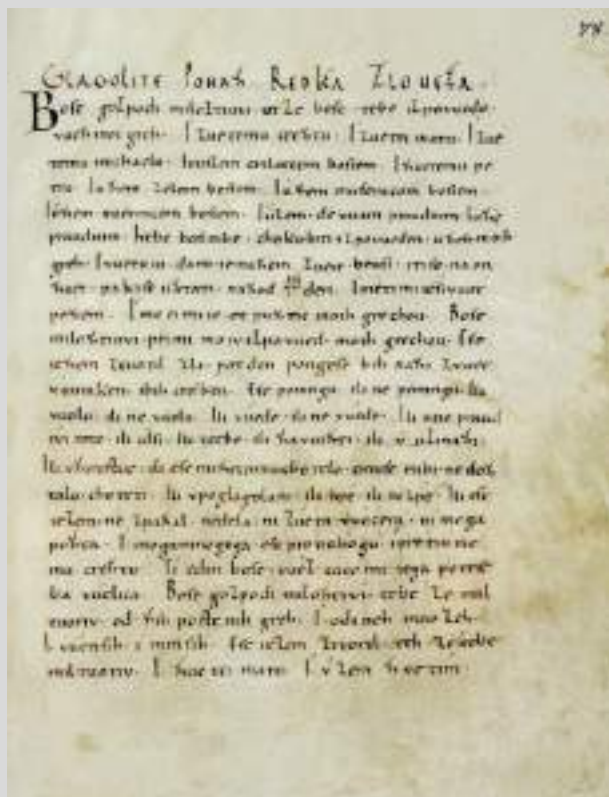 GLAGOLITE PONAZ REDKA ZLOUEZA
Bose gozpodi miloztiuvi otze bose tebe izpovuede
vuez moi greh. I zuetemu creztu. I zuetei marii. I zue
temu michaelu. Iuuizem crilatcem bosiem. I zuetemu pe
tru. Iusem zelom bosiem. Iusem musenicom bosiem.
Iusem vuernicom bosiem. Iuzem devuam praudnim. Iuze
praudnim. Itebe bosirabe. choku biti izpovueden. uzeh moih
greh. Iueruiu. da mi ie nazem zuete beusi. iti se na on
zuet. pakise uztati. nazodni den. Imeti mi ie sivuot
pozem. Imeti mi ie otpuztic moih grechou. Bose
miloztiuvi. primi moiv. izpovued. moih grechou. Ese
iezem ztuoril zla. pot den pongese bih nazi zvuet
vuuraken. ibih crisken. Ese pomngu. ili ne pomngu. Ili
vuolu. ili ne vuolu. Ili vuede. ili ne vuede. Ili une praud
nei rote. ili ulsi. Ili tatbe. ili zavuizti. ili v uzmazi.
Ili vzinistue. ili ese mi tomu chotelo. emuse mi bi ne doz
talo. choteti. Ili vpoglagolani. ili zpe. ili nezpe. Ili ese
iezem ne zpazal. nedela. ni zueta vuecera. ni mega
pozta. I inoga mnogoga. ese protiu bogu. i protiu me
mu creztu. Ti edin bose. vuez caco mi iega potre
ba vuelica. Bose gozpodi miloztivi. tebe ze mil
tuoriv. od sih postenih greh. I od ineh mnozeh.
I vuensih i minsih. Ese iezem ztvoril. teh ze tebe
miltuoriv. I zuetei marii. I vzem zvetim.